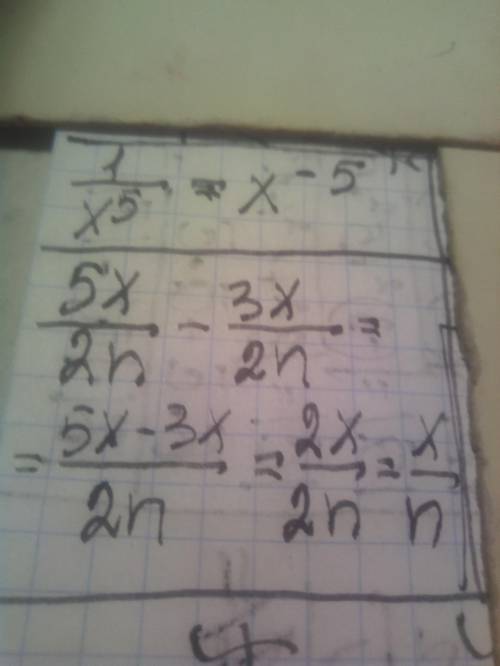 1/x⁵ = x⁻⁵
5x/2n - 3x/2n =
= 5x-3x/2n = 2x/2n = x/n